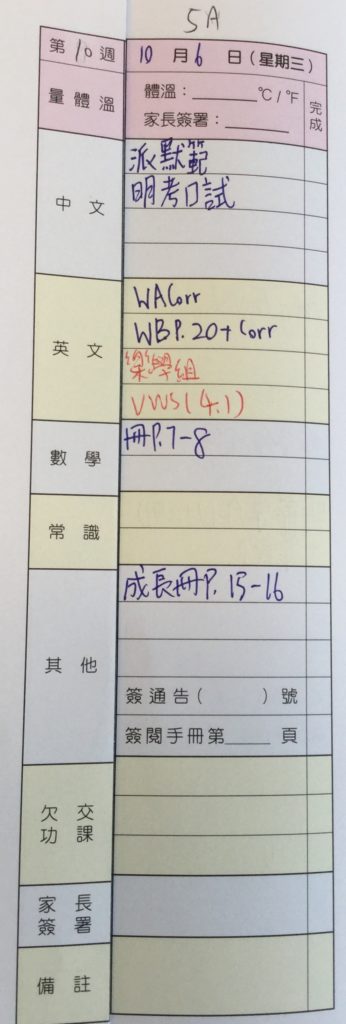 5A
第10週 10月6日(星期三)
量體溫 體溫：______℃/℉ 完成
家長簽署：______
中文 派默範
明考口試
英文 WACorr
WBP.20+Corr
樂學組
VWS(4.1)
數學 冊P.7-8
常識
其他 成長冊P.15-16
簽通告( )號
簽閱手冊第____頁
欠交功課
家長簽署
備註